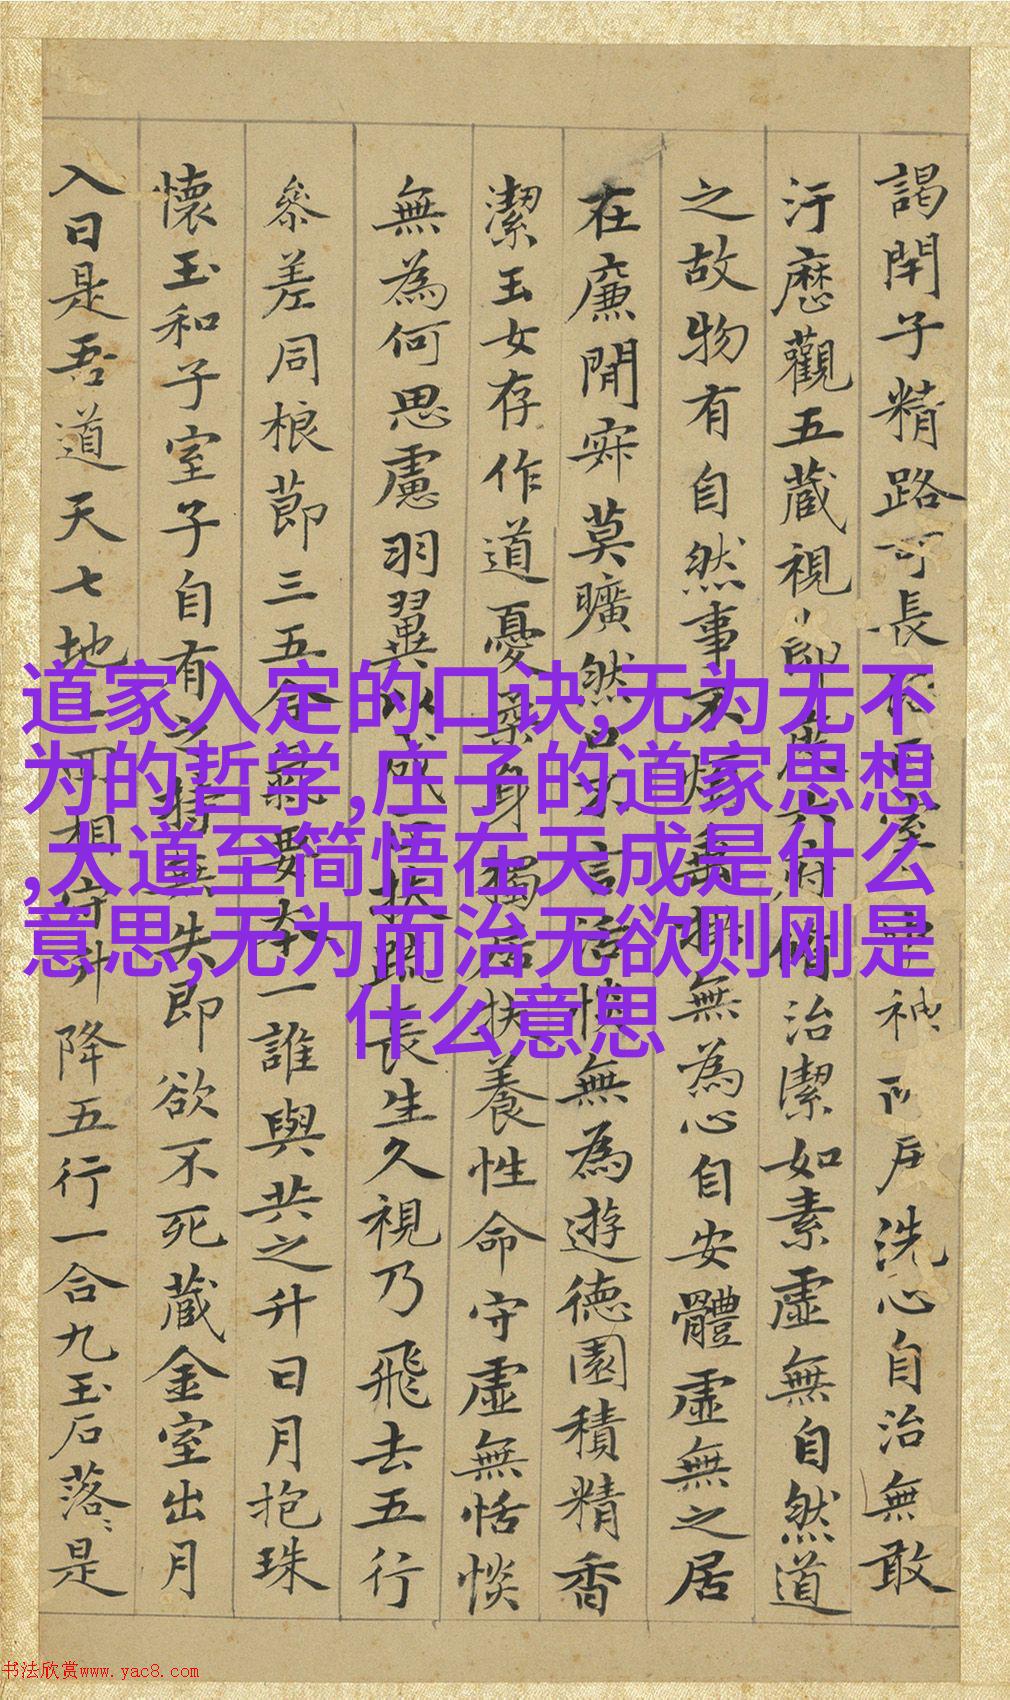 謁閉子精路可長
洗心自治無敢
汙歷觀五藏視
治潔如素虛無自然道
之故物有自然事
無為心自安體虛無之居
在廉閒寂莫曠然
無為遊德園積精香
潔玉女存作道憂
身獨
養性命守虛無恬惔
無為何思慮羽翼以成
扶疏長生久視乃飛去五行
參差同根節三五合氣要本一誰與共之升日月抱珠
懷玉和子室子自有之持無失即欲不死藏金室出月
入日是吾道天七地
相
升降五行一合九玉石落〻是
道家入定的口诀,无为无不
为的哲学,庄子的道家思想
,大道至简悟在天成是什么
意思,无为而治无欲则刚是
什么意思
书法欣赏www.yac8.com